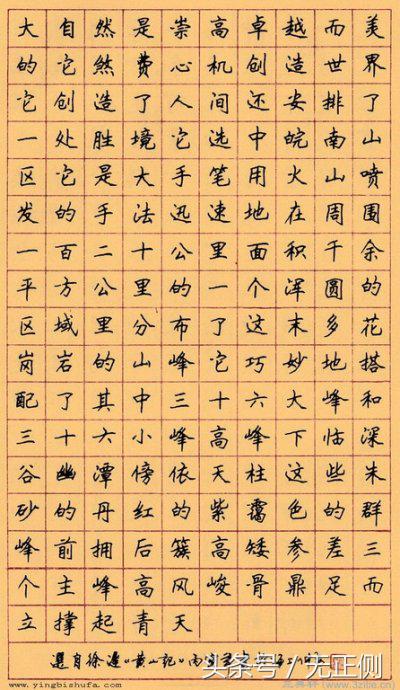 大自然是崇高卓越而美
的它煞费心机创造世界
它创造了人间还安排了
一处胜境它选中皖南山
区它是大手笔用火山喷
发的手法迅速地在周围
一百二十公里面积千余
平方公里的一个浑圆的
区域里分布了这末多花
岗岩的山峰它巧妙地搭
配了其中三十六大峰和
三十六小峰高峰下临深
谷幽潭傍依天柱这些朱
砂的丹红的紫霭色的群
峰前拥后簇高矮参差三
个主峰高风峻骨鼎足而
立撑起青天
選自徐遲《黄山記》
头条号 / 无正侧
www.yingbishufa.com
www.32lbe.cn